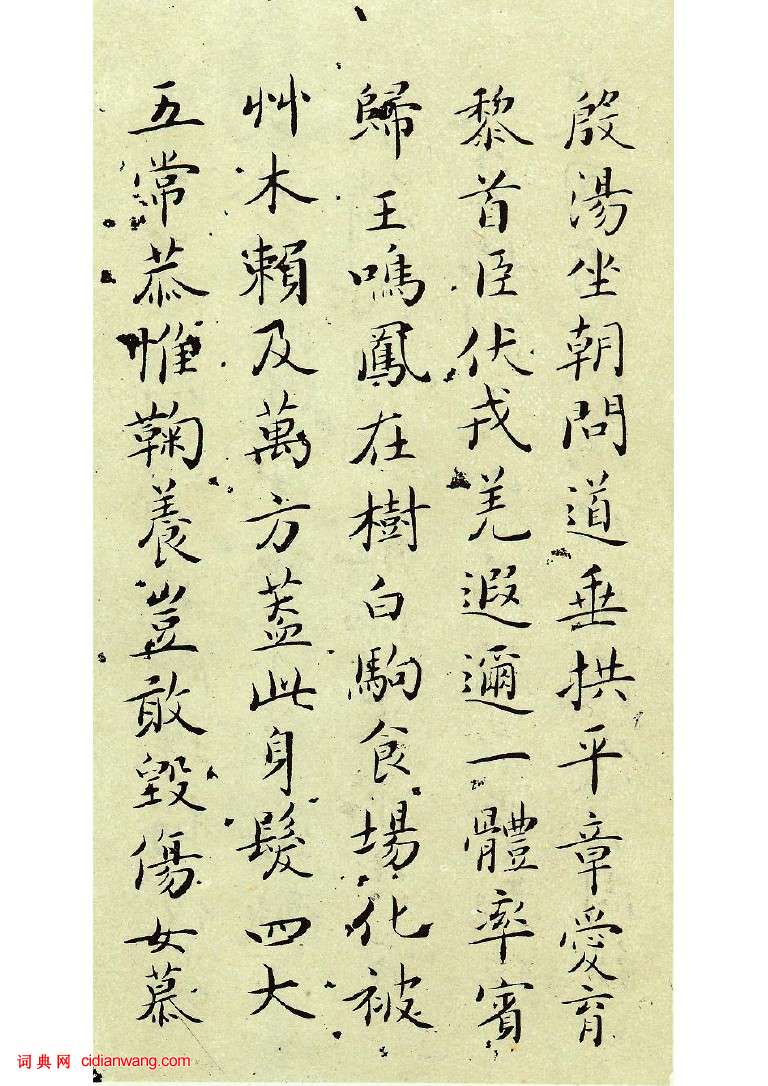 殷湯坐朝問道垂拱平章愛育
黎首臣伏戎羌遐邇一體率賓
歸王鳴鳳在樹白駒食場化被
艸木賴及萬方蓋此身髮四大
五常恭惟鞠養豈敢毀傷女慕
词典网 cidianwang.com